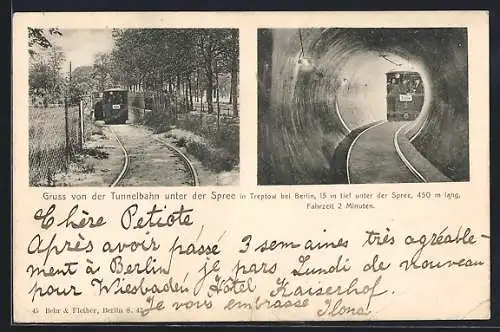 Gruss von der Tunnelbahn unter der Spree in Treptow bei Berlin, 15 m tief unter der Spree, 450 m lang,
Fahrzeit 2 Minuten.
Chère Petiote
Après avoir passé 3 semaines très agréable-
ment à Berlin je pars Lundi de nouveau
pour Wiesbaden Hôtel Kaiserhof.
Je vous embrasse Ilona.
45 Behr & Flether, Berlin S. 42